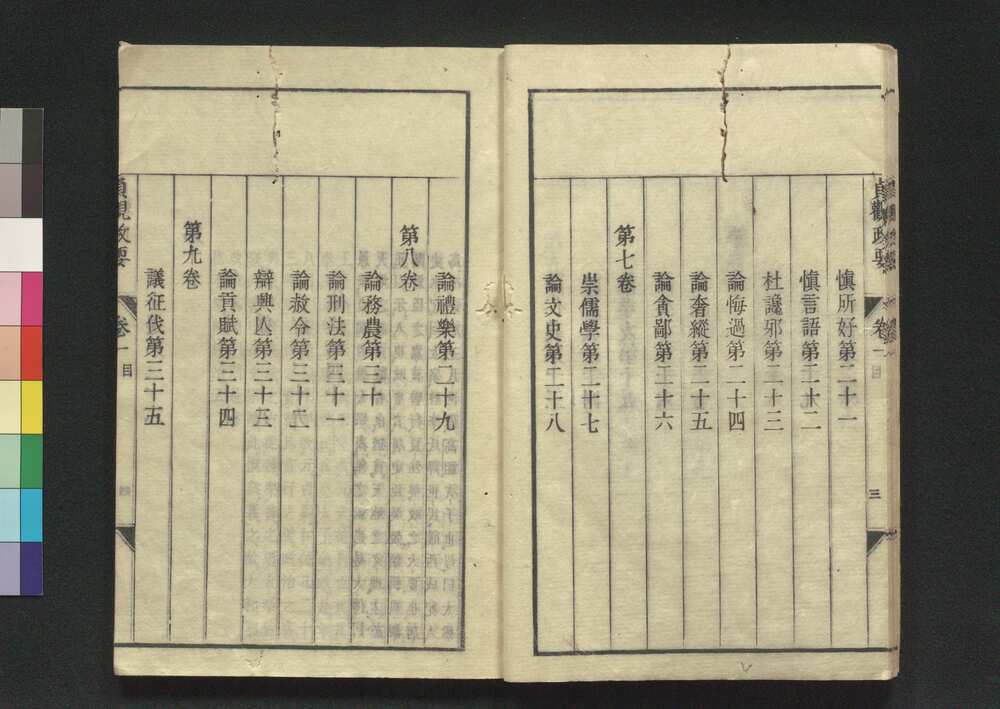 貞觀政要
卷一
目
三
慎所好第二十一
慎言語第二十二
杜讒邪第二十三
論悔過第二十四
論奢縱第二十五
論貪鄙第二十六
第七卷
崇儒學第二十七
論文史第二十八
論禮樂第二十九
第八卷
論務農第三十
論刑法第三十一
論赦令第三十二
辯興亾第三十三
論貢賦第三十四
第九卷
議征伐第三十五
貞觀政要
卷一
目
四